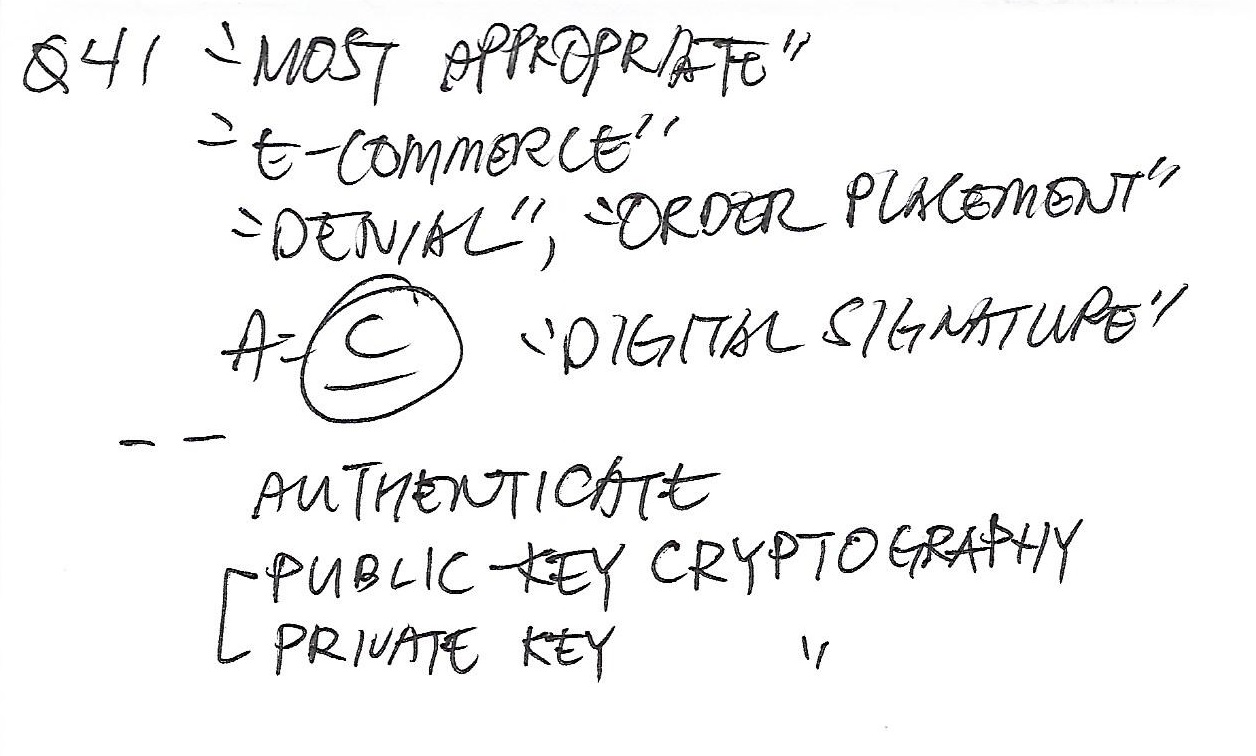 Q41 "MOST APPROPRIATE"
"E-COMMERCE"
"DENIAL", "ORDER PLACEMENT"
A= C "DIGITAL SIGNATURE"
--
AUTHENTICATE
PUBLIC-KEY CRYPTOGRAPHY
PRIVATE KEY "